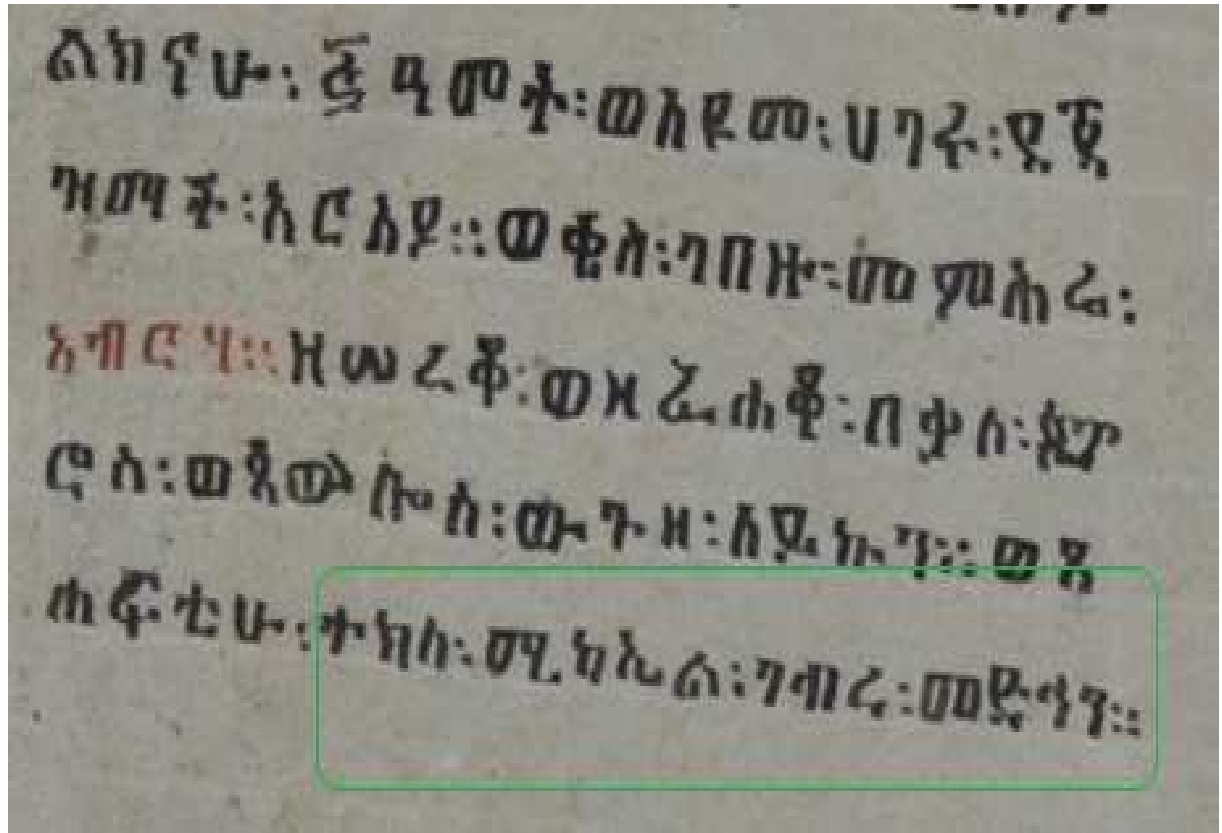 ልክናሁ፡ ፭ ዓመት፡ ወእዩመ፡ ሀገሩ፡
ዝማች፡ አርአያ። መምሕሬ፡
አብርሃ። ዘሠረቆ፡ ወዘ ፈሐቆ፡ በቃለ፡ ጴጥ
ሮስ፡ ወጳውሎስ፡ ውጉዘ፡ ለይኩን። ወጸ
ሐፍቲሁ፡ ተክለ፡ ሚካኤል፡ ገብረ፡ መድኅን።